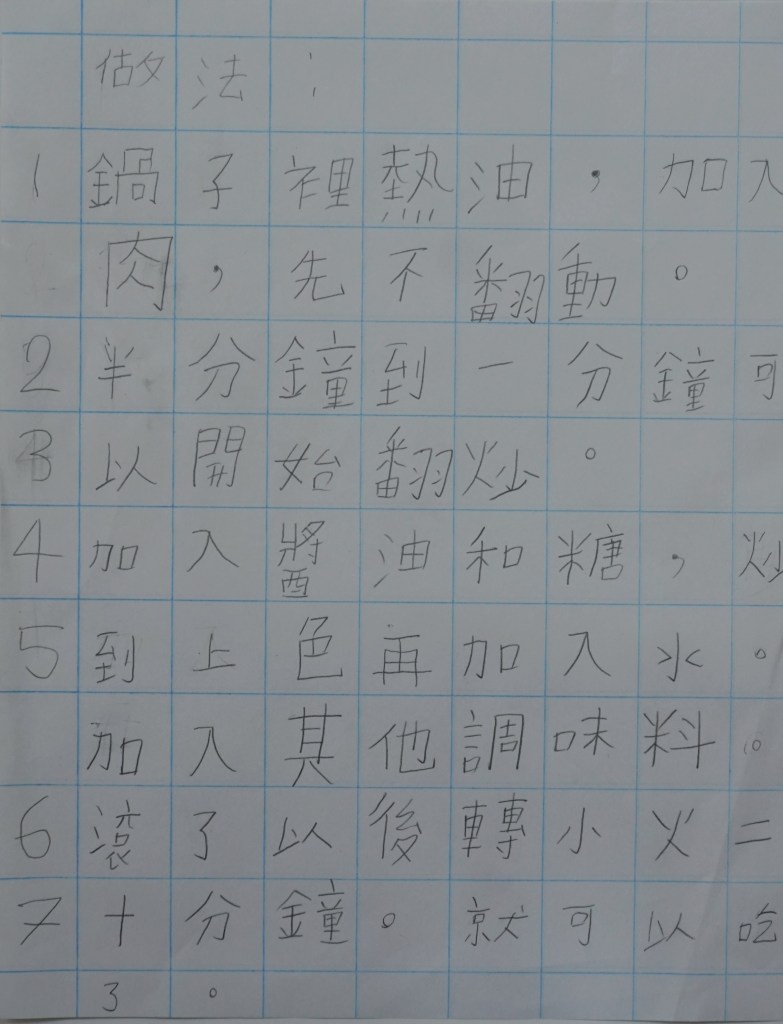 做法：
1 鍋子裡熱油，加入
肉，先不翻動。
2 半分鐘到一分鐘可
3 以開始翻炒。
4 加入醬油和糖，炒
5 到上色再加入水。
加入其他調味料。
6 滾了以後轉小火二
7 十分鐘。就可以吃
了。